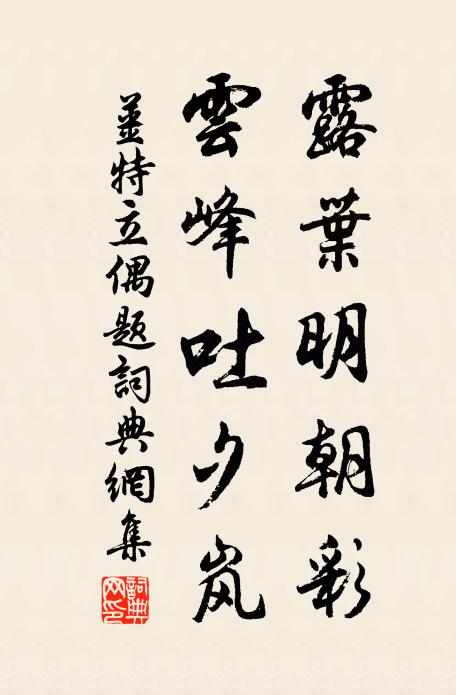 露葉明朝彩
雲峰吐夕岚
姜特立偶题詞典網集
詞典网印